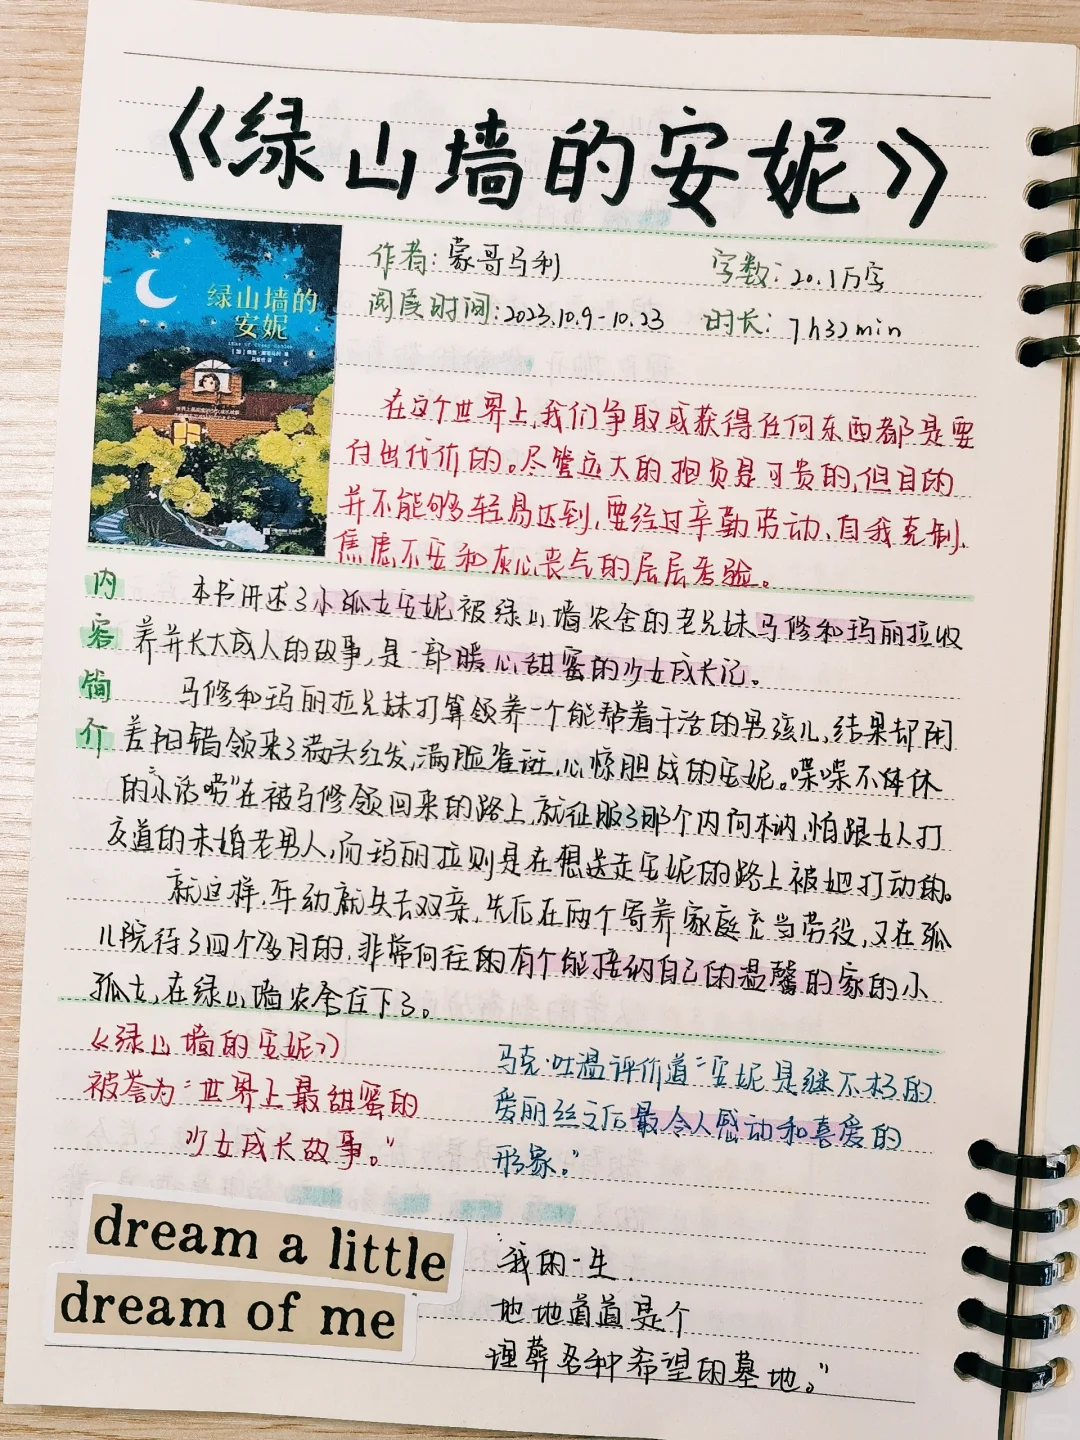 《绿山墙的安妮》
绿山墙的
安妮
作者:蒙哥马利
字数:20.1万字
阅读时间:2023.10.9-10.23
时长:7h32min
在这个世界上,我们争取或获得任何东西都是要
付出代价的。尽管远大的抱负是可贵的,但目的
并不能够轻易达到,要经过辛勤劳动、自我克制、
焦虑不安和灰心丧气的层层考验。
内容简介
本书讲述了小孤女安妮被绿山墙农舍的老兄妹马修和玛丽拉收
养并长大成人的故事,是一部暖心甜蜜的少女成长记。
马修和玛丽拉兄妹打算领养一个能帮着干活的男孩儿,结果却阴
差阳错领来了满头红发,满脸雀斑,心惊胆战的安妮。喋喋不休休
的“小话唠”在被马修领回来的路上,就征服了那个内向木讷,怕跟女人打
交道的未婚老男人,而玛丽拉则是在想送走安妮的路上被她打动的。
就这样,年幼就失去双亲,先后在两个寄养家庭充当劳役,又在孤
儿院待了四个多月的,非常向往的有个能接纳自己的温馨的家的小
孤女,在绿山墙农舍住下了。
《绿山墙的安妮》
被誉为“世界上最甜蜜的
少女成长故事。”
马克·吐温评价道“安妮是继不朽的
爱丽丝之后最令人感动和喜爱的
形象。”
dream a little
dream of me
我的一生
地地道道是个
埋葬各种希望的墓地。”